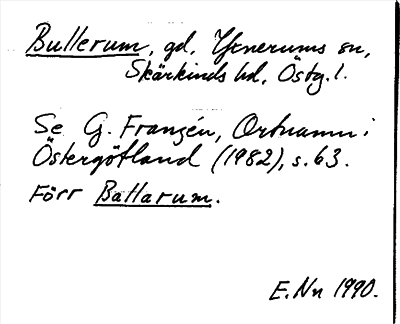 Bullerum, gd, Yxnerums sn,
Skärkinds hd, Östg. l.
Se G. Franzén, Ortnamn i
Östergötland (1982), s. 63.
Förr Ballarum.
E. Nn 1990.